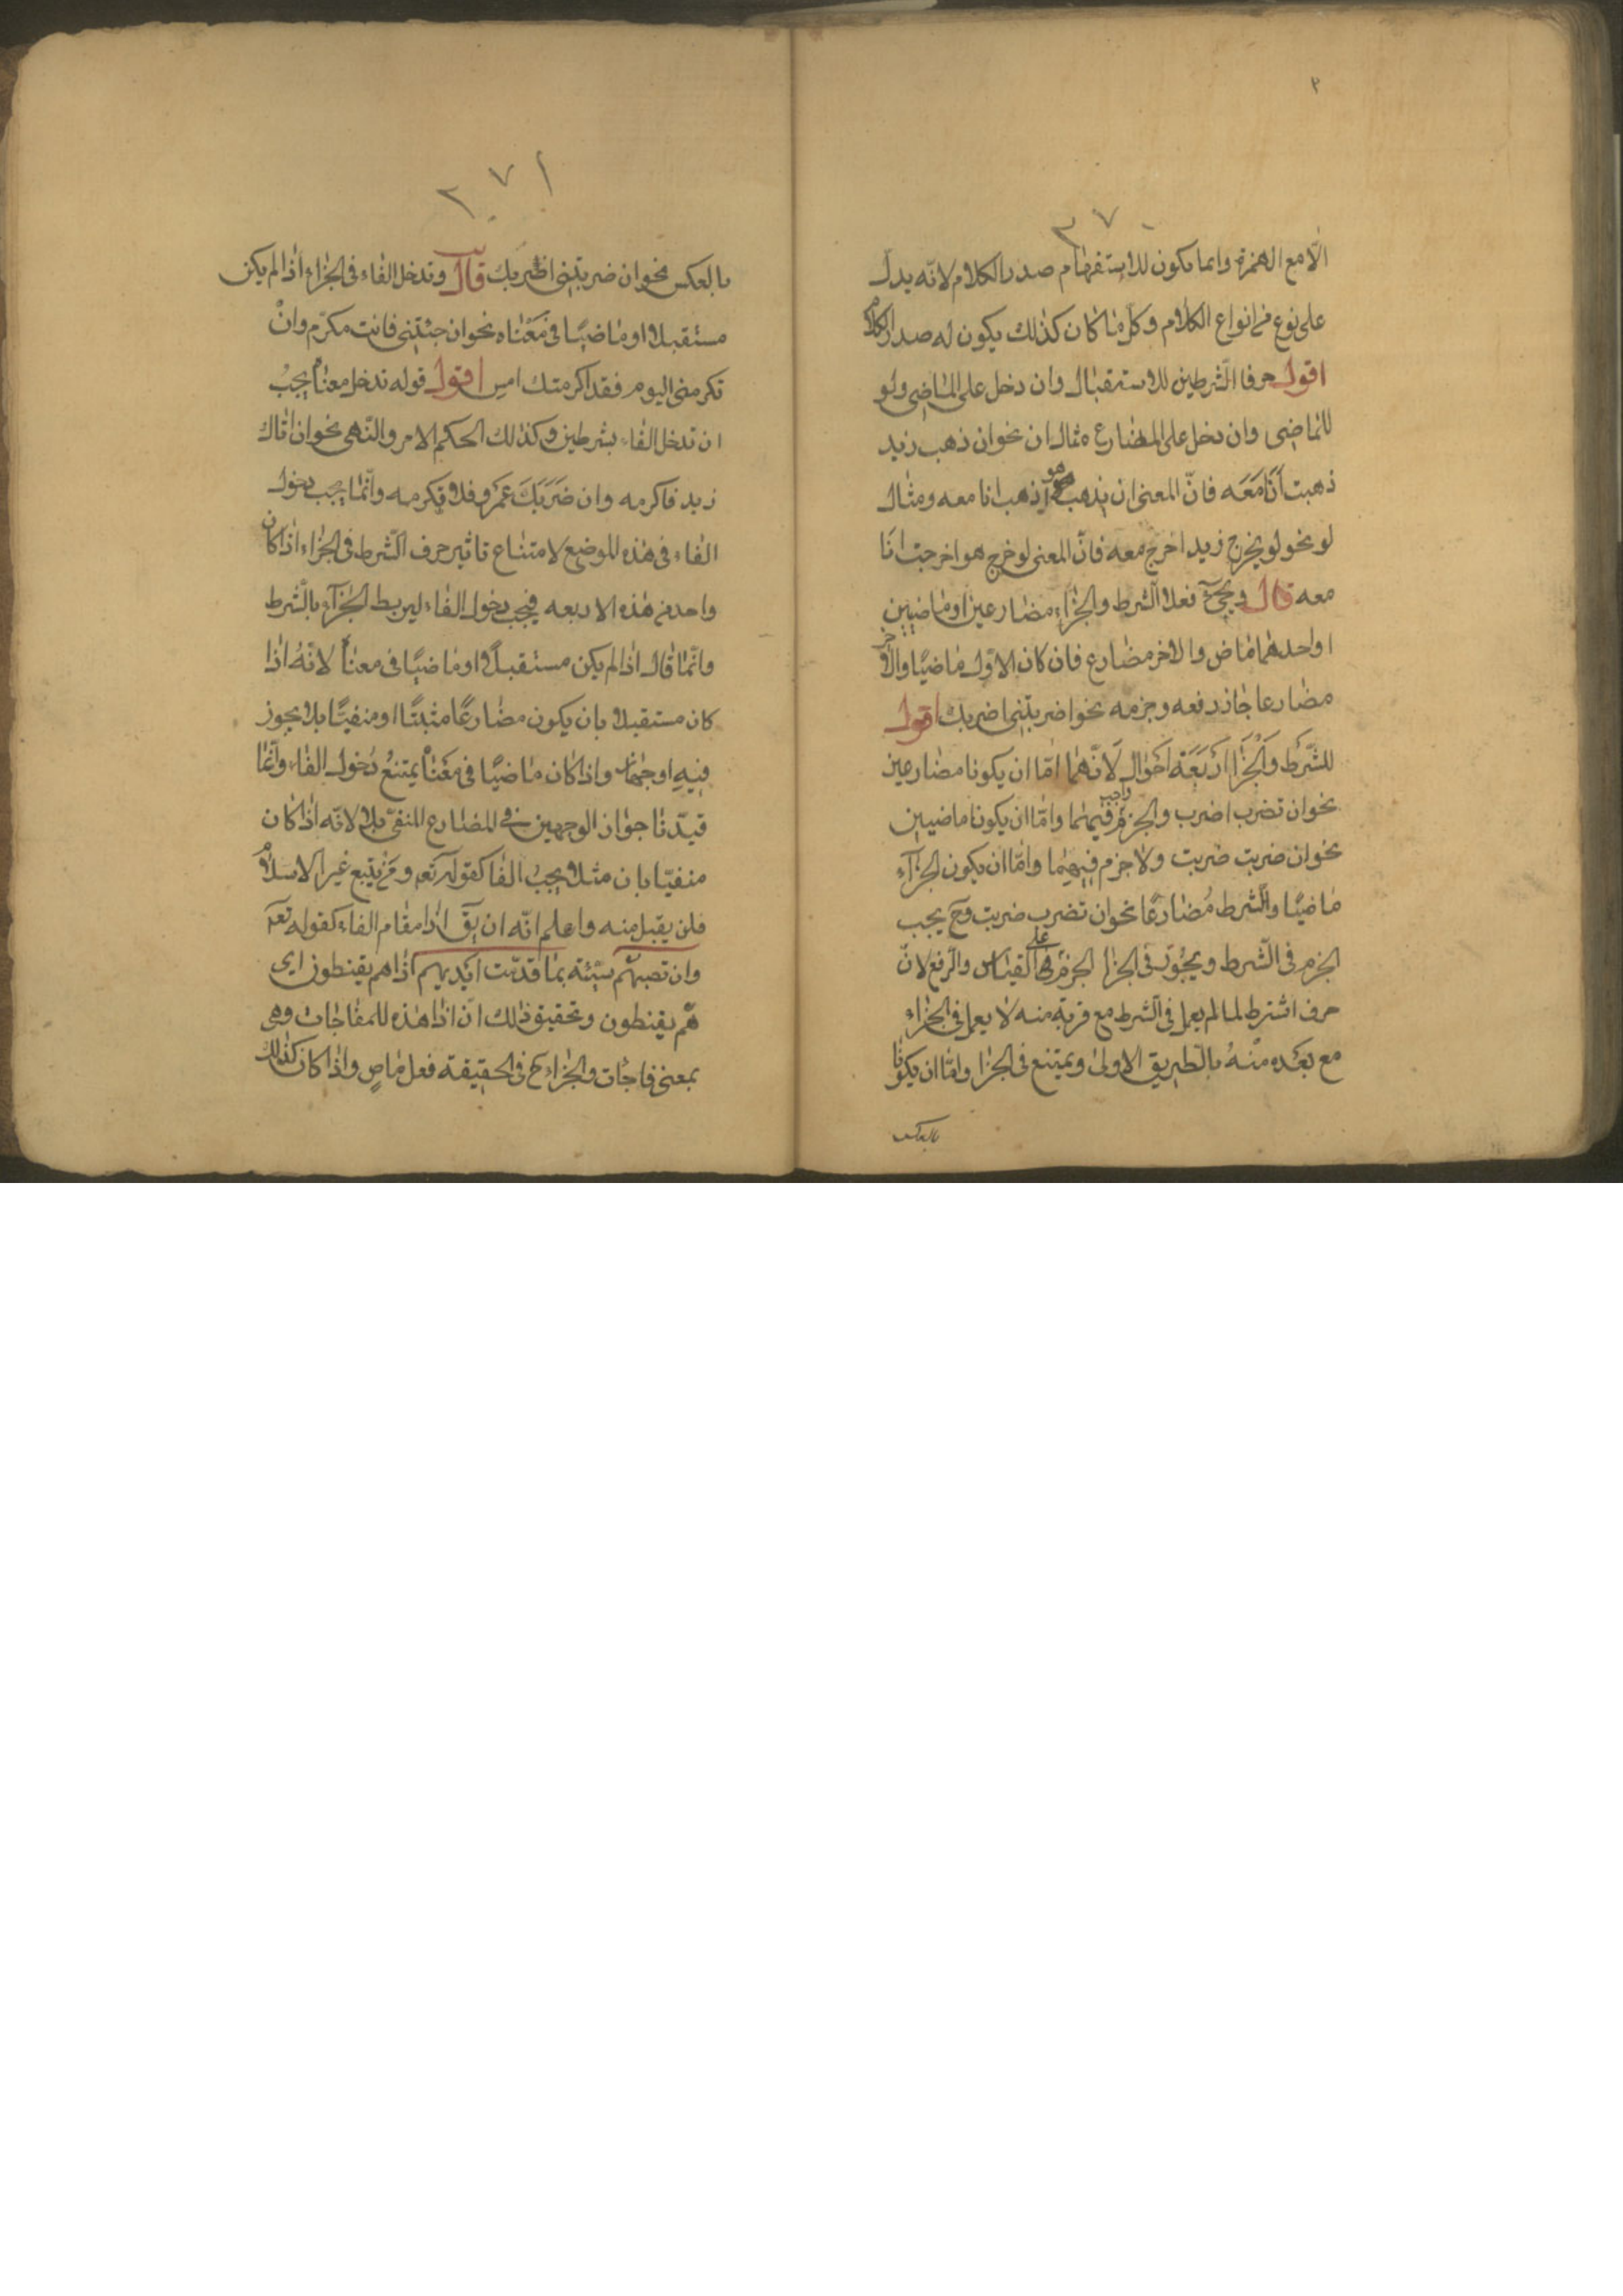 ٣
٣٧٠
الّا مع الهمزة وانما يكون للاستفهام صدر الكلام لانّه يدلّ
على نوع من انواع الكلام وكلّ ما كان كذلك يكون له صدر الكلام
اقول حرفا الشّرطين للاستقبال وان دخل على الماضى ولو
للماضى وان دخل على المضارع مثال ان نحو ان ذهب زيد
ذهبت اَنَا مَعَه فانّ المعنى ان يذهب هو اذهب انا معه ومثال
لو نحو لو يخرج زيد اخرج معه فانّ المعنى لو خرج هو اخرجت انَا
معه قال ويجئ فعلا الشرط والجزاء مضارعين او ماضيين
او احدهما ماض والاخر مضارع فان كان الاوّل ماضيًا والآخر
مضارعا جاز رفعه وجزمه نحو اضربتنى اضربك اقول
للشَّرط وَالْجَزَا اَرْبَعَة اَحْوَال لَانّهما امّا ان يكونا مضارعين
نحو ان تضرب اضرب والجزم واجب فيهما وامّا ان يكونا ماضيين
نحو ان ضربت ضربت ولا جزم فيهما وامّا ان يكون الجزآء
ماضيًا والشرط مُضَارعًا نحو ان تضرب ضربت وح يجب
الجزم فى الشّرط ويجُوز فى الجزا الجزم على القياس والرّفع لانّ
حرف اشترط لما لم يعمل فى الشّرط مع قربة منه لا يعمل فى الجزاء
مع بعَده منْهُ بالطّريق الاولىٰ ويمتنع فى الجزا وامّا ان يكونا
بالعكس
٣٧١
بالعكس نحو ان ضربتنى اضربك قال وتدخل الفاء فى الجزاء اذا لم يكن
مستقبلا او ماضيًا فى مَعْنَاه نحو ان جئتنى فانت مكرّم وانْ
تكرمنى اليوم فقد اكرمتك امس اقول قوله تدخل معناه يجبُ
ان تدخل الفاء بشرطين وكذلك الحكم الامر والنّهى نحو ان اتاك
زيد فاكرمه وان ضَرَبَكَ عَمرو فلا تكرمه وانّما يجب دخول
الفاء فى هذه الموضع لامتناع تاثير حرف الشّرط فى الجزاء اذا كان
واحد من هذه الاربعه فيجب دخول الفاء ليربط الجزآء بالشّرط
وانّما قال اذا لم يكن مستقبلًا او ماضيًا فى معناه لانّهُ اذا
كان مستقبلا بان يكون مضارعًا مثبتًا او منفيًّا بلا يجوز
فيهِ اوجهان واذا كان ماضيًا فى مَعْنَاه يمتنعُ دُخول الفاء وانّما
قيدّنا جوٰاز الوجهين فى المضارع المنفىّ بلا لانّه اذا كان
منفيّا بان مثلا يجبُ الفا كقوله تعه ومَن يتبع غير الاسلام
فلن يقبل منه واعلم انّه ان يقٓ اذا مقام الفاء كقوله تعه
وان تصبهُم سيّئة بما قدّمت اَيْديهم اذاهم يقنطون اى
هُم يقنطون وتحقيق ذلك انّ اذا هذه للمفاجات وهى
بمعنى فاجئات والجزاء ح فى الحقيقة فعل ماضٍ واذا كان كذلك